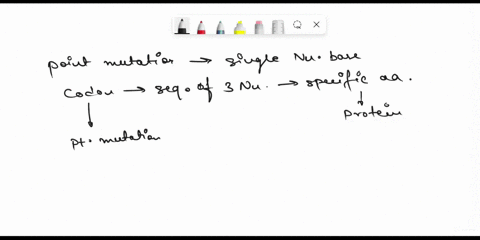 point mutation → single Nu. base
Codon → seq. of 3 Nu. → specific aa.
↓ ↓
Protein
pt. mutation